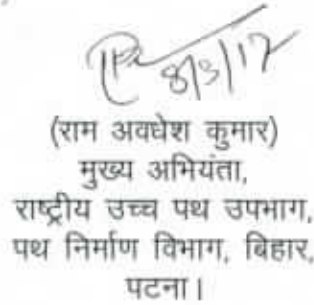 8/3/17
(राम अवधेश कुमार)
मुख्य अभियंता,
राष्ट्रीय उच्च पथ उपभाग,
पथ निर्माण विभाग, बिहार,
पटना।